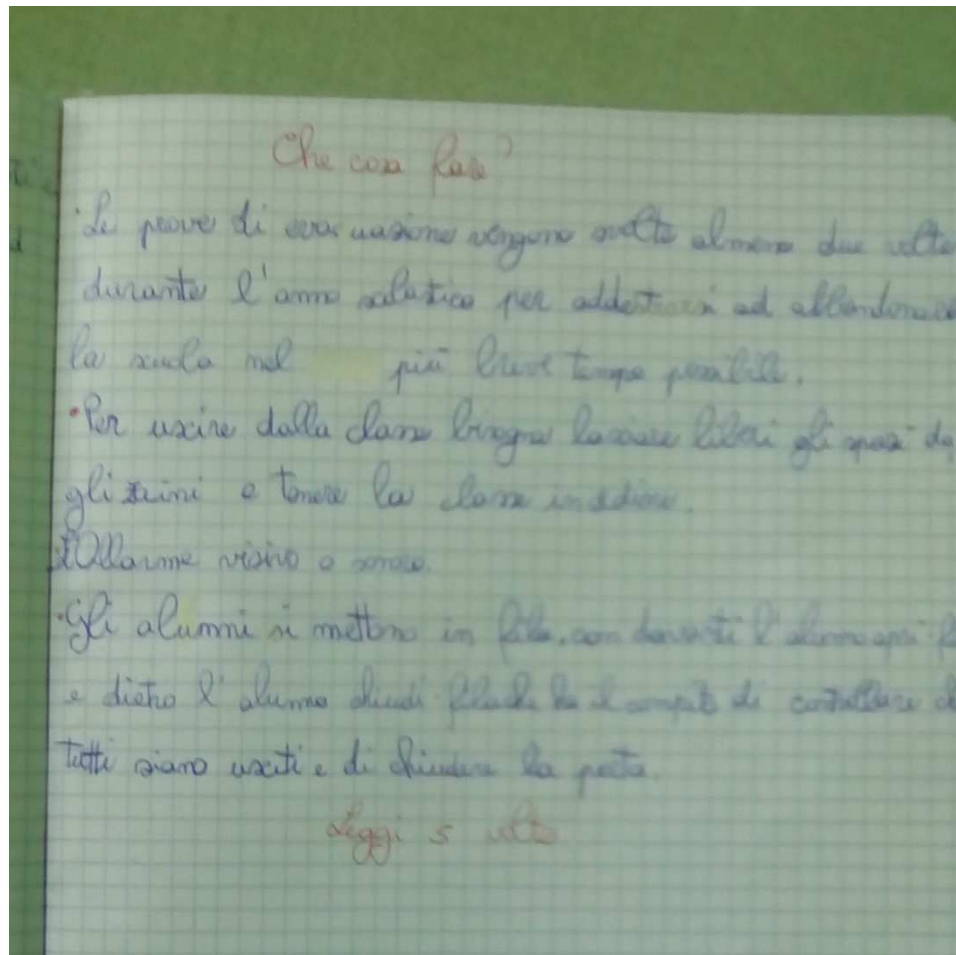 Che cosa fare?
• Le prove di evacuazione vengono svolte almeno due volte
durante l'anno scolastico per addestrarsi ad abbandonare
la scuola nel più breve tempo possibile.
• Per uscire dalla classe bisogna lasciare liberi gli spazi da
gli zaini e tenere la classe in ordine.
Allarme visivo o sonoro.
• Gli alunni si mettono in fila, con davanti l'alunno apri f
e dietro l'alunno chiudi fila che ha il compito di controllare
tutti siano usciti e di chiudere la porta.
Leggi 5 volte